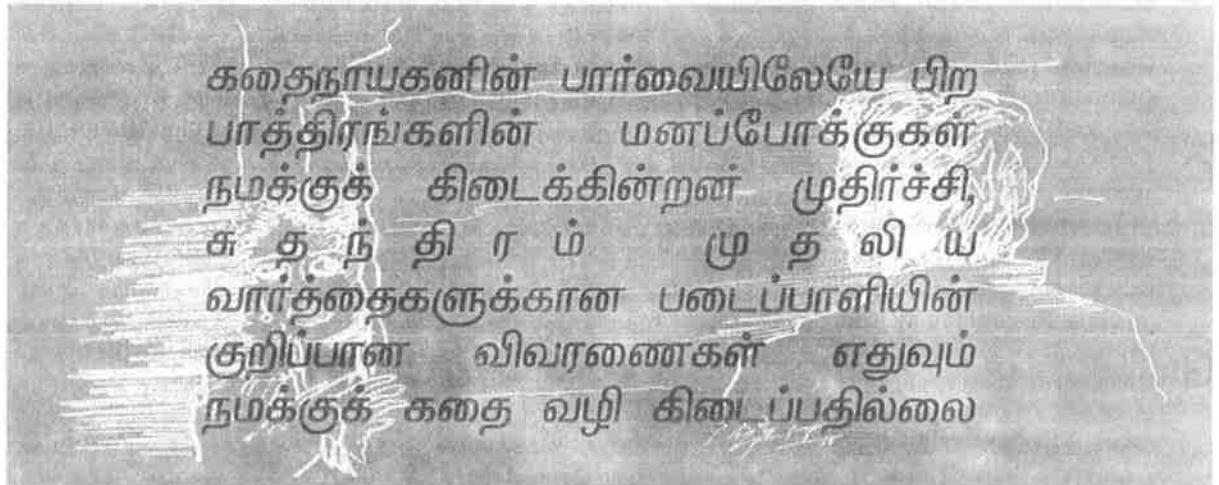 கதைநாயகனின் பார்வையிலேயே பிற
பாத்திரங்களின் மனப்போக்குகள்
நமக்குக் கிடைக்கின்றன் முதிர்ச்சி,
சுதந்திரம் முதலிய
வார்த்தைகளுக்கான படைப்பாளியின்
குறிப்பான விவரணைகள் எதுவும்
நமக்குக் கதை வழி கிடைப்பதில்லை